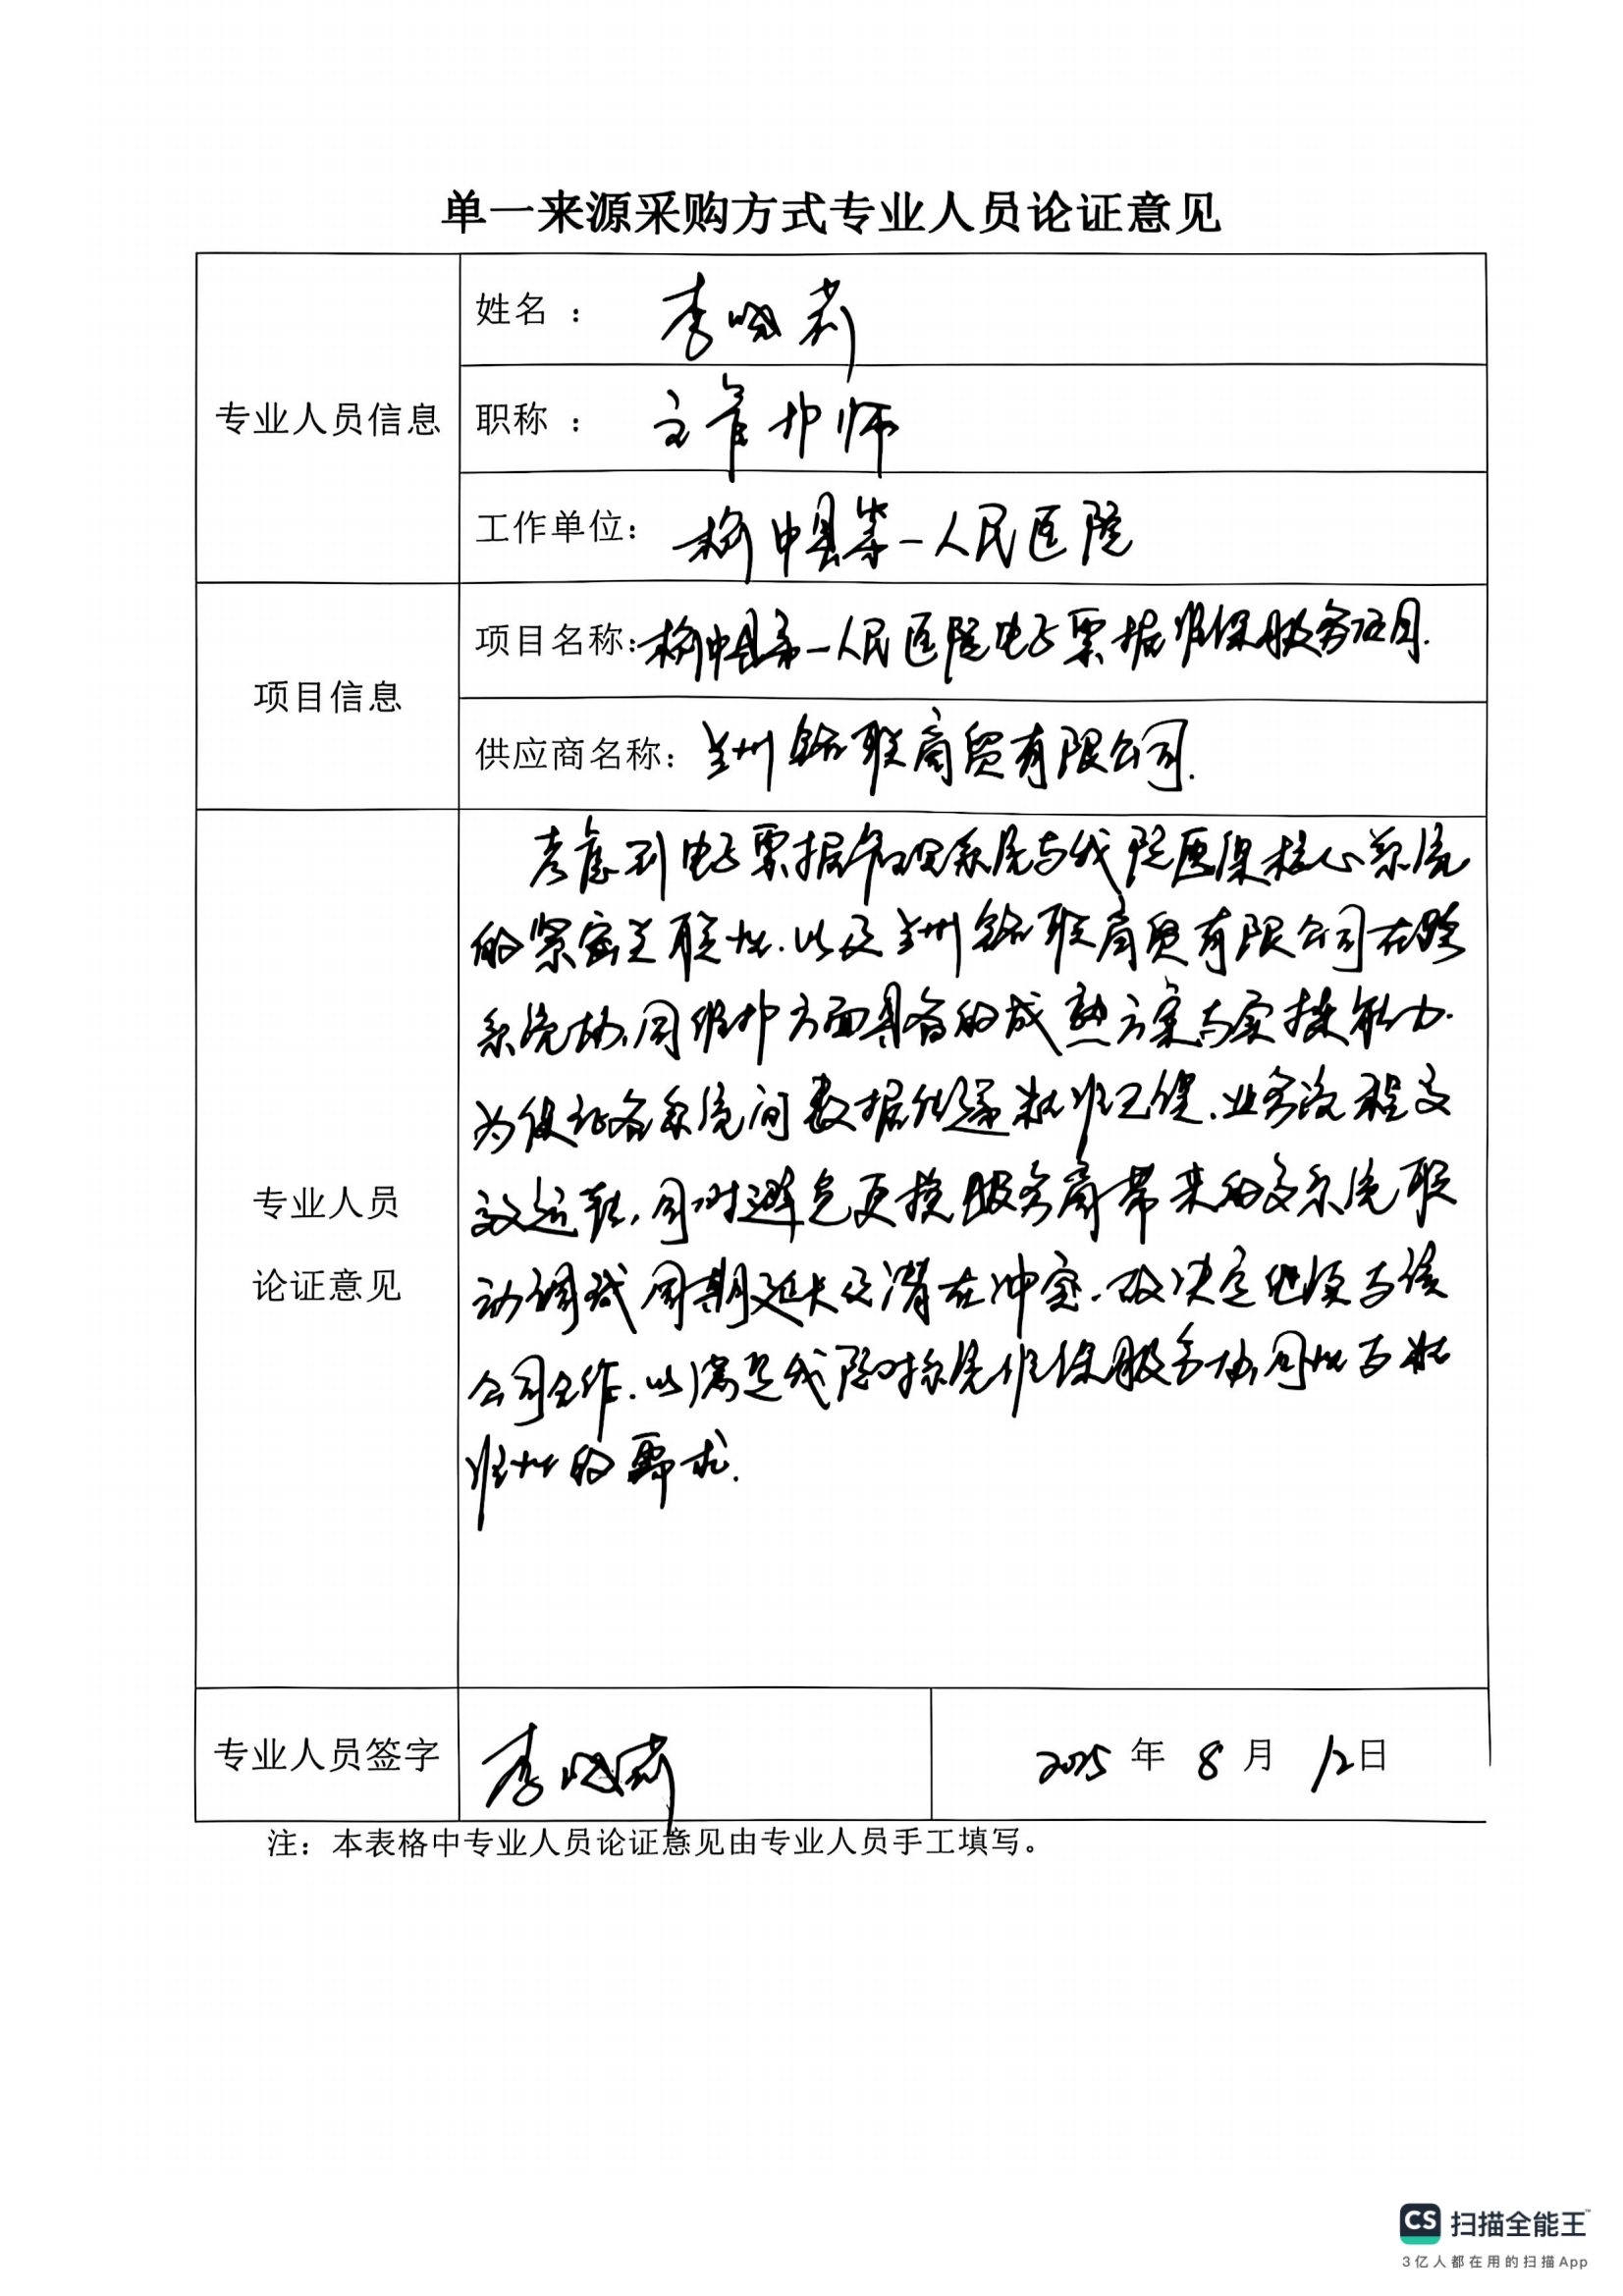 单一来源采购方式专业人员论证意见
专业人员信息
姓名： 李晓莉
职称： 主管护师
工作单位： 榆中县第一人民医院
项目信息
项目名称：榆中县第一人民医院电子票据维保服务项目.
供应商名称：兰州铭联商贸有限公司.
专业人员
论证意见
考虑到电子票据管理系统与我院医保核心系统
的紧密关联性.以及兰州铭联商贸有限公司在跨
系统协同维护方面具备的成熟方案与实操能力.
为保证各系统间数据传递精准无误.业务流程交
效运转,同时避免更换服务商带来的多系统联
动调试周期延长及潜在冲突.故决定继续与该
公司合作.以满足我院对系统维保服务协同性与精
准性的要求.
专业人员签字
李晓莉
2025年8月12日
注：本表格中专业人员论证意见由专业人员手工填写。
CS 扫描全能王
3亿人都在用的扫描App